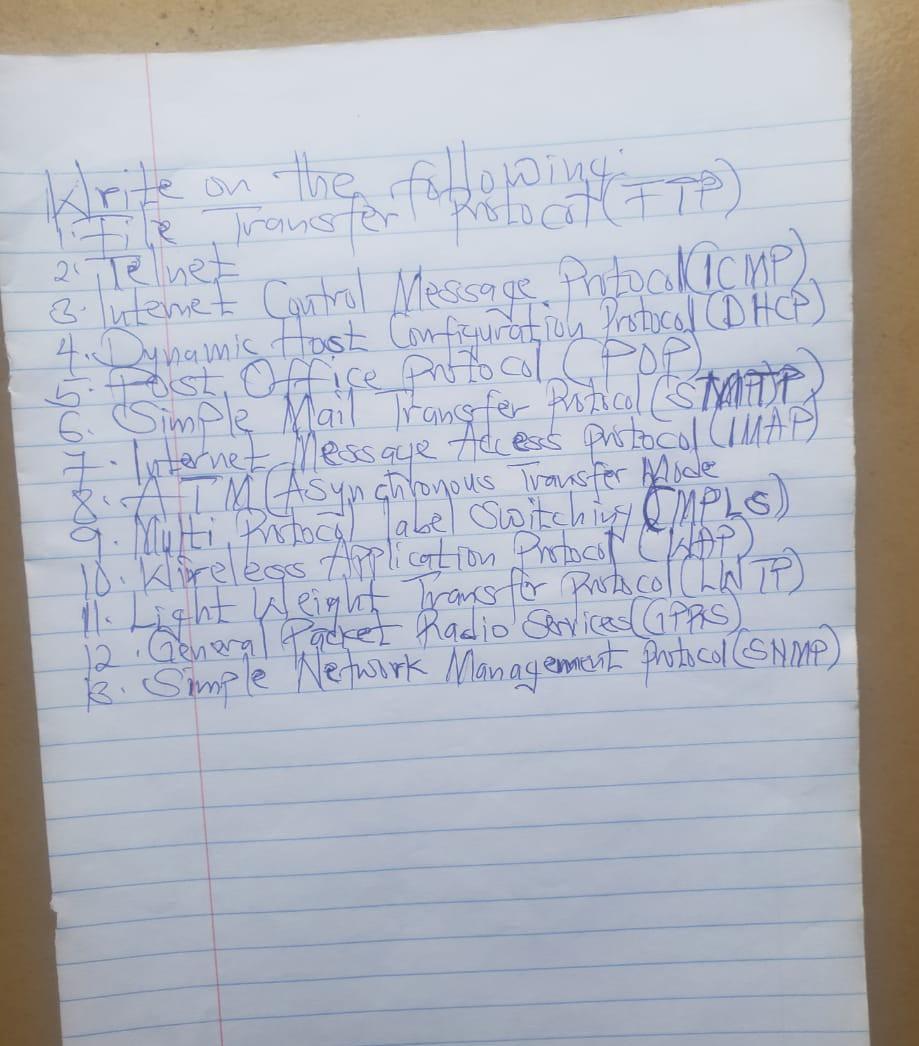 Write on the following:
1. File Transfer Protocol (FTP)
2. Telnet
3. Internet Control Message Protocol (ICMP)
4. Dynamic Host Configuration Protocol (DHCP)
5. Post Office Protocol (POP)
6. Simple Mail Transfer Protocol (SMTP)
7. Internet Message Access Protocol (IMAP)
8. ATM (Asynchronous Transfer Mode
9. Multi Protocol label Switching (MPLS)
10. Wireless Application Protocol (WAP)
11. Light Weight Transfer Protocol (LWTP)
12. General Packet Radio Services (GPRS)
13. Simple Network Management Protocol (SNMP)